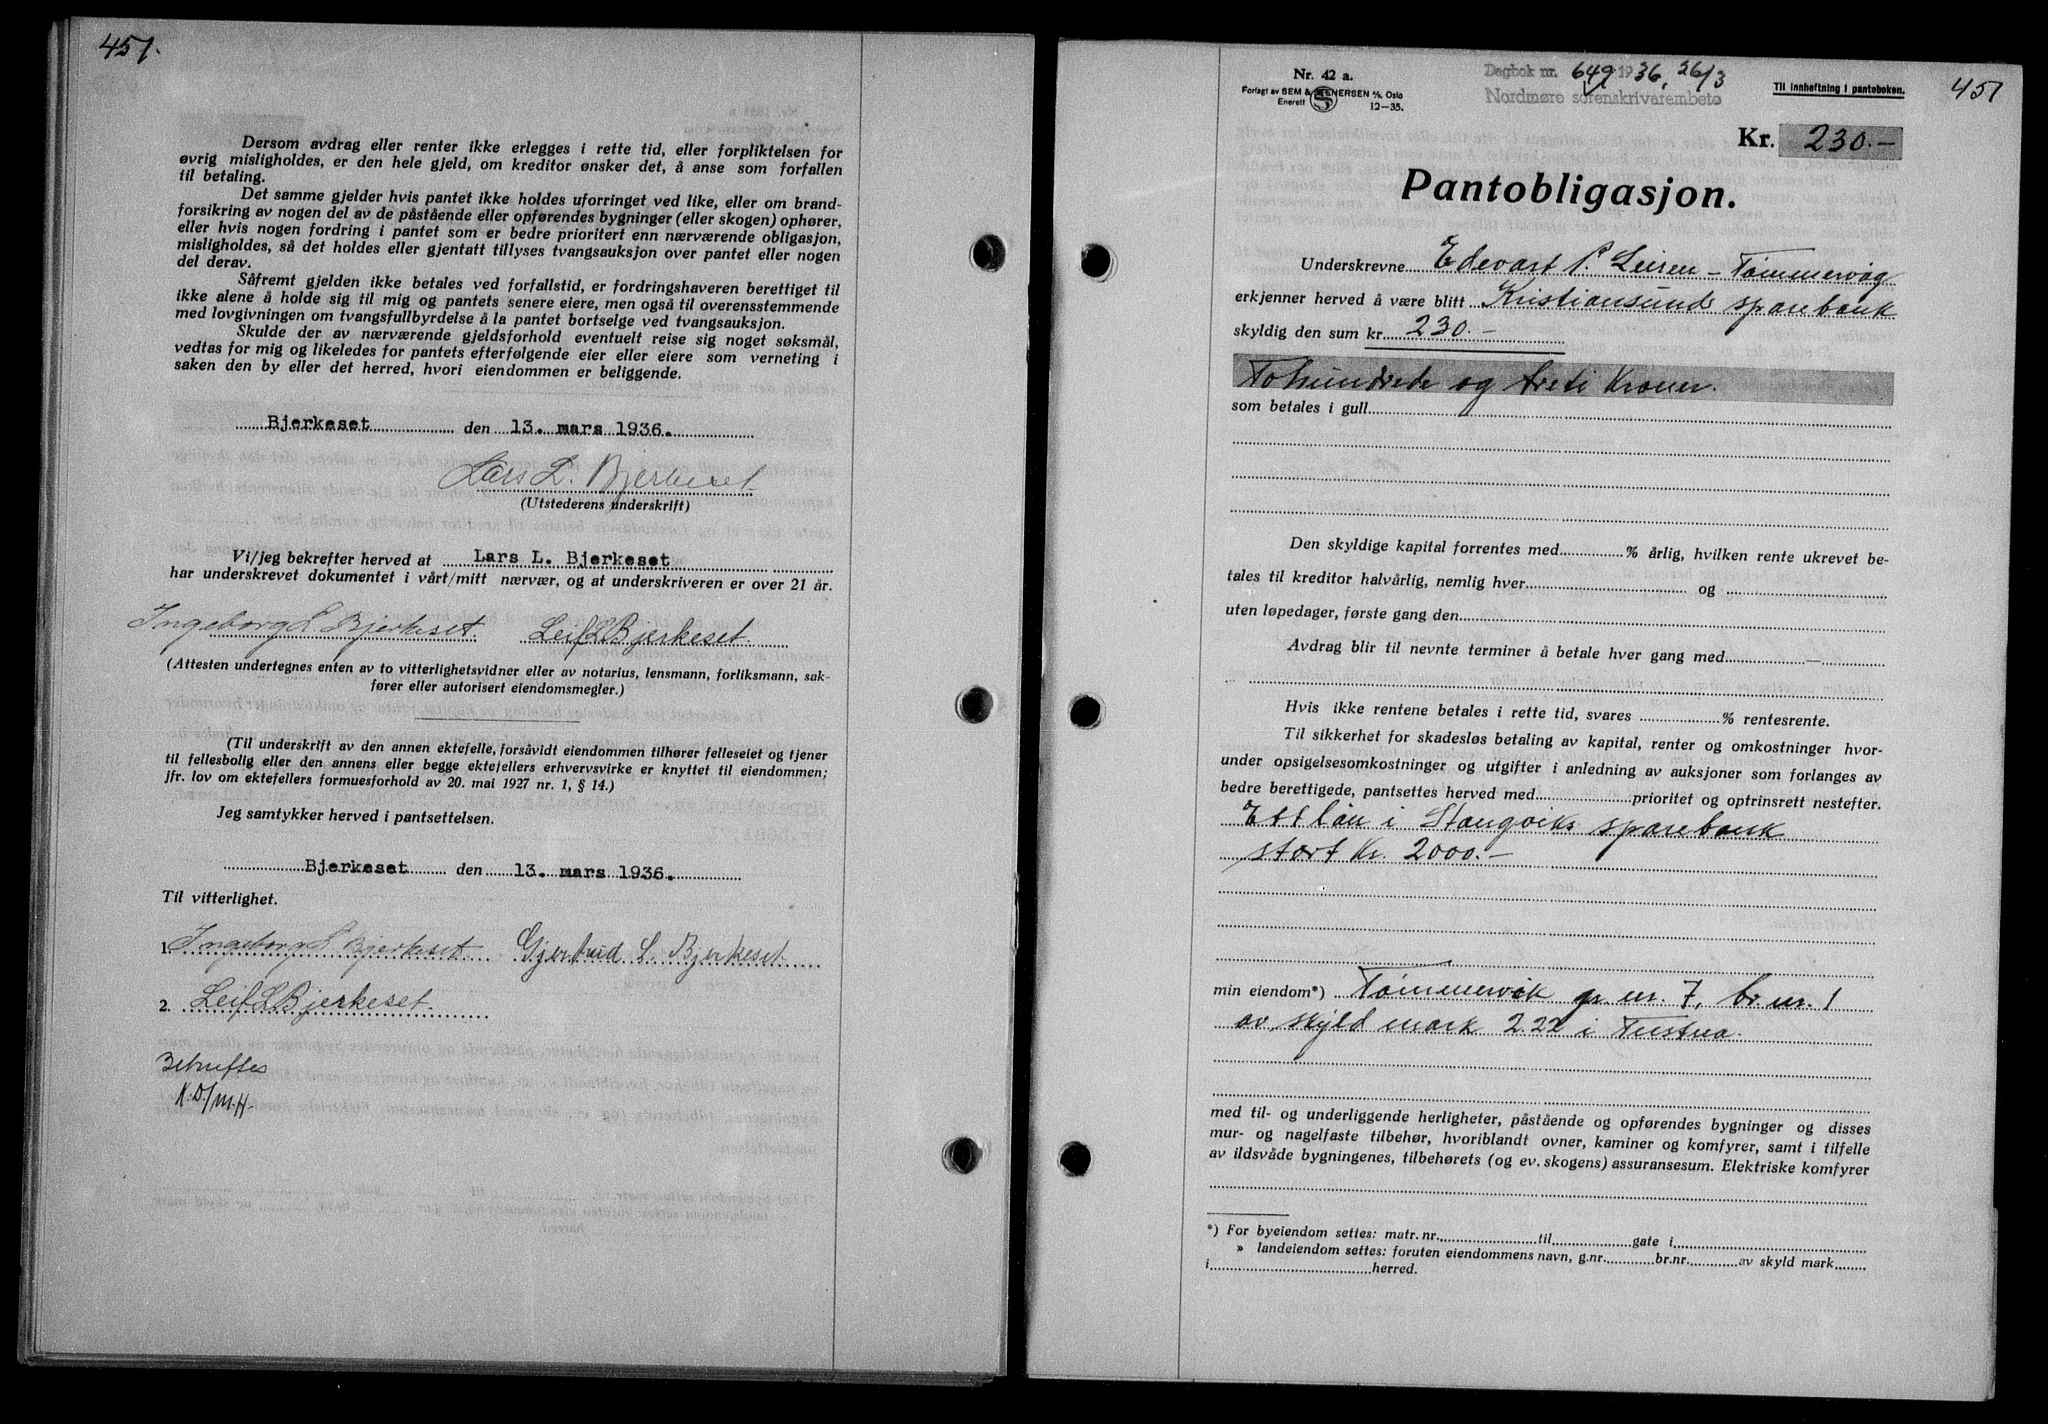 451.
Dersom avdrag eller renter ikke erlegges i rette tid, eller forpliktelsen for
øvrig misligholdes, er den hele gjeld, om kreditor ønsker det, å anse som forfallen
til betaling.
Det samme gjelder hvis pantet ikke holdes uforringet ved like, eller om brand-
forsikring av nogen del av de påstående eller opførendes bygninger (eller skogen) ophører,
eller hvis nogen fordring i pantet som er bedre prioritert enn nærværende obligasjon,
misligholdes, så det holdes eller gjentatt tillyses tvangsauksjon over pantet eller nogen
del derav.
Såfremt gjelden ikke betales ved forfallstid, er fordringshaveren berettiget til
ikke alene å holde sig til mig og pantets senere eiere, men også til overensstemmende
med lovgivningen om tvangsfullbyrdelse å la pantet bortselge ved tvangsauksjon.
Skulde der av nærværende gjeldsforhold eventuelt reise sig noget søksmål,
vedtas for mig og likeledes for pantets efterfølgende eier eller eiere som verneting i
saken den by eller det herred, hvori eiendommen er beliggende.
Bjerkeset den 13. mars 1936.
Lars L. Bjerkeset
(Utstederens underskrift)
Vi/jeg bekrefter herved at Lars L. Bjerkeset
har underskrevet dokumentet i vårt/mitt nærvær, og at underskriveren er over 21 år.
Ingeborg L Bjerkeset. Leif L Bjerkeset.
(Attesten undertegnes enten av to vitterlighetsvidner eller av notarius, lensmann, forliksmann, sak-
fører eller autorisert eiendomsmegler.)
(Til underskrift av den annen ektefelle, forsåvidt eiendommen tilhører felleseiet og tjener
til fellesbolig eller den annens eller begge ektefellers erhvervsvirke er knyttet til eiendommen;
jfr. lov om ektefellers formuesforhold av 20. mai 1927 nr. 1, § 14.)
Jeg samtykker herved i pantsettelsen.
Bjerkeset den 13. mars 1936.
Til vitterlighet.
1. Ingeborg L Bjerkeset. Gjertrud L. Bjerkeset.
2. Leif L Bjerkeset.
Bekreftes
K.D/M.H.
Nr. 42 a.
Forlagt av SEM & STENERSEN A/S, Oslo
Enerett 12-35.
Dagbok nr. 649 1936, 26/3
Nordmøre sorenskrivarembete
Til innheftning i panteboken.
451
Kr. 230.-
Pantobligasjon.
Underskrevne Edevart P. Leiren - Tømmervåg
erkjenner herved å være blitt Kristiansund sparebank
skyldig den sum kr. 230.-
Tohundrede og treti Kroner.
som betales i gull
Den skyldige kapital forrentes med % årlig, hvilken rente ukrevet be-
tales til kreditor halvårlig, nemlig hver og
uten løpedager, første gang den
Avdrag blir til nevnte terminer å betale hver gang med —
Hvis ikke rentene betales i rette tid, svares % rentesrente.
Til sikkerhet for skadesløs betaling av kapital, renter og omkostninger hvor-
under opsigelsesomkostninger og utgifter i anledning av auksjoner som forlanges av
bedre berettigede, pantsettes herved med prioritet og optrinsrett nestefter.
Ett lån i Stangvik sparebank
stort Kr. 2000.-
min eiendom*) Tømmervåk gr. nr. 7, br. nr. 1
av skyld mark 2.22 i Tustna.
med til- og underliggende herligheter, påstående og opførendes bygninger og disses
mur- og nagelfaste tilbehør, hvoriblandt ovner, kaminer og komfyrer, samt i tilfelle
av ildsvåde bygningenes, tilbehørets (og ev. skogens) assuransesum. Elektriske komfyrer
*) For byeiendom settes: matr. nr. til gate i
» landeiendom settes: foruten eiendommens navn, g.nr. br.nr. av skyld mark
i herred.